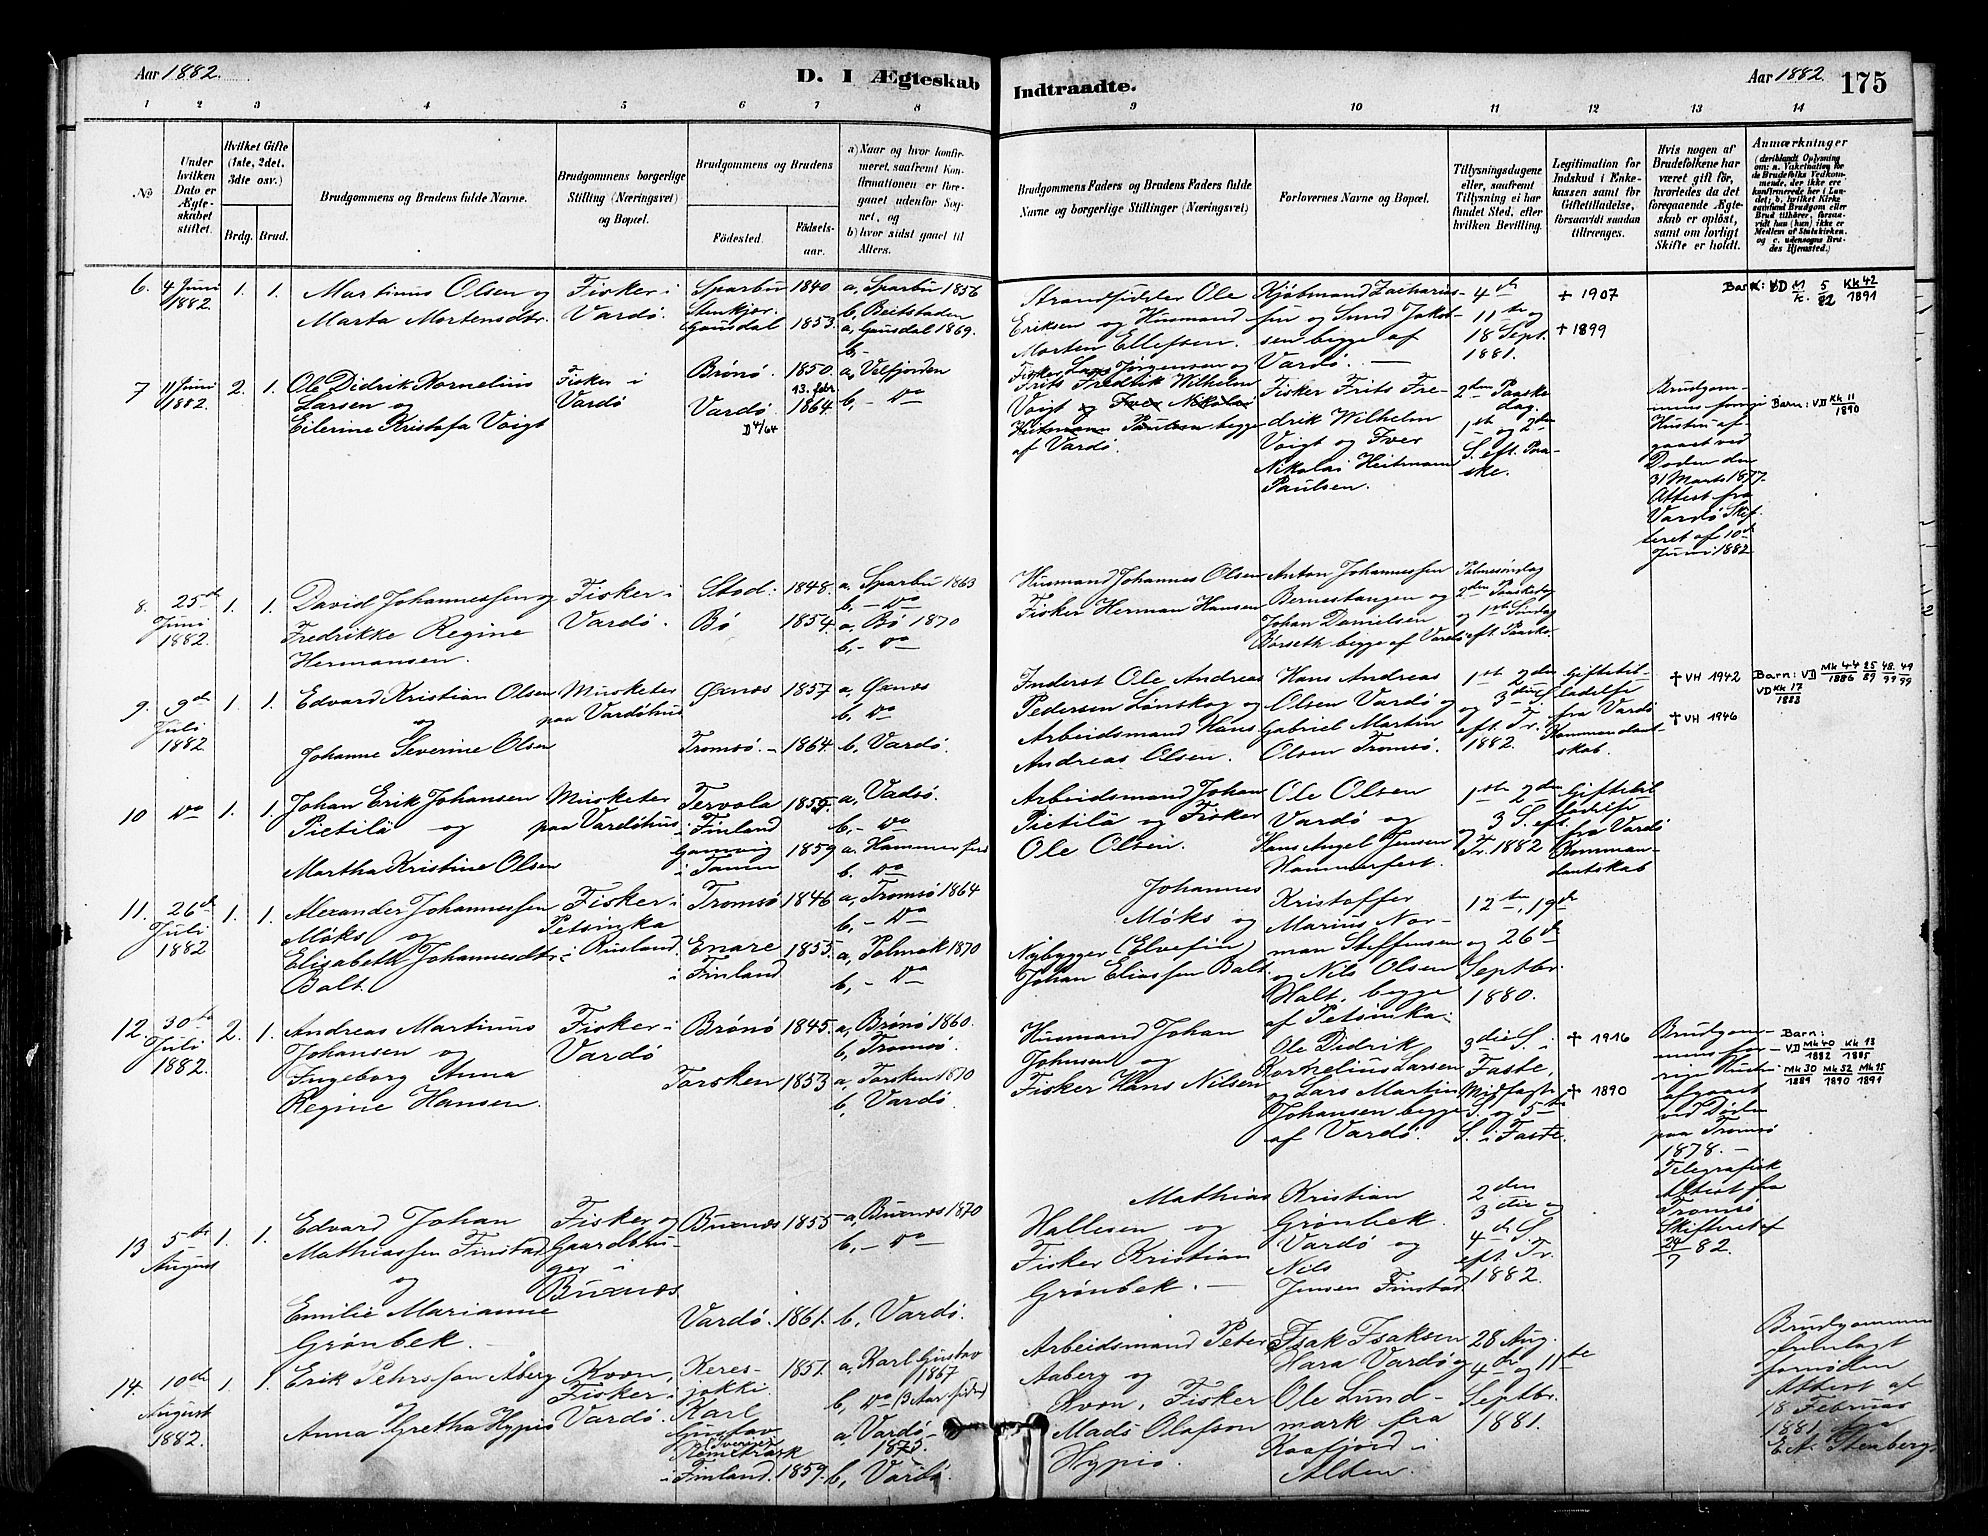 Aar 1882.
D. I Ægteskab
Indtraadte.
Aar 1882.
175
1 2 3 4 5 6 7 8
9 10 11 12 13 14
No
Under
hvilken
Dato er
Ægte-
skabet
stiftet.
Hvilket Gifte
(1ste, 2det,
3die osv.)
Brdg. Brud.
Brudgommens og Brudens fulde Navne.
Brudgommens borgerlige
Stilling (Næringsvei)
og Bopæl.
Brudgommens og Brudens
Fødested.
Fødsels-
aar.
a) Naar og hvor konfir-
meret, saafremt Kon-
firmationen er fore-
gaaet udenfor Sog-
net, og
b) hvor sidst gaaet til
Alters.
Brudgommens Faders og Brudens Faders fulde
Navne og borgerlige Stillinger (Næringsvei)
Forlovernes Navne og Bopæl.
Tillysningsdagene
eller, saafremt
Tillysning ei har
fundet Sted, efter
hvilken Bevilling.
Legitimation for
Indskud i Enke-
kassen samt for
Giftetilladelse,
forsaavidt saadan
tiltrænges.
Hvis nogen af
Brudefolkene har
været gift før,
hvorledes da det
foregaaende Ægte-
skab er opløst,
samt om lovligt
Skifte er holdt.
Anmærkninger
(deriblandt Oplysning
om: a. Vakcination for
de Brudefolks Vedkom-
mende, der ikke ere
konfirmerede her i Lan-
det; b. hvilket Kirke-
samfund Brudgom eller
Brud tilhører, forsaa-
vidt han (hun) ikke er
Medlem af Statskirken,
og c. udensogns Bru-
des Hjemsted.)
6. 4 Juni 1882. 1. 1.
Martinus Olsen og
Marta Mortensdtr.
Fisker i
Vardö.
Sparbu 1840
Stenkjær.
Gausdal 1853.
a, Sparbu 1856
b, Beitstaden
a, Gausdal 1869.
b, -
Strandsidder Ole
Eriksen og Husmand
Morten Ellefsen.
Kjøbmand Zacharias-
sen og Sund Jakob-
sen begge af
Vardö. —
4de
11te og
18 Sept.
1881.
+ 1907
+ 1899
Barn: VD M/k. 5/82 Kk 42/1891
7 11 Juni 1882. 2. 1.
Ole Didrik Kornelius
Larsen og
Eilerine Kristafa Voigt
Fisker i
Vardö
Brönö. 1850.
Vardö. 13. febr 1864
D 4/64
a, Velfjorden
b, - do
Fisker Lars Jørgensen og
Frits Fredrik Wilhelm
Voigt og Iver Nikolai
Heitmann Paulsen begge
af Vardö.
Fisker Frits Fre-
drik Wilhelm
Voigt og Iver
Nikolai Heitmann
Paulsen.
2den Paaske
dag.
1ste og 2den
S. eft. Paa-
ske.
Brudgom-
mens forrige
Hustru af-
gaaet ved
Döden den
31 Marts 1877.
Attest fra
Vardö Skif-
teret af 10de
Juni 1882
Barn: VD Kk 11/1890
8. 25de Juni 1882. 1. 1.
David Johannessen og
Fredrikke Regine
Hermansen.
Fisker i
Vardö.
Stod: 1848.
Bö 1854.
a, Sparbu 1863
b, - do
a, Bö 1870
b, - do
Husmand Johannes Olsen
Fisker Herman Hansen
Anton Johannessen
Bernstangen og
Johan Danielsen
Börseth begge af Vardö
Palmesöndag
2den Paaskedag
og 1ste Söndag
eft. Paaske.
9. 9de Juli 1882 1. 1.
Edvard Kristian Olsen
og
Johanne Severine Olsen
Musketer
paa Vardöhus
Øxnes 1857
Tromsö. - 1864
a, Øxnes
b, do
b, Vardö.
Inderst Ole Andreas
Pedersen Lönskog og
Arbeidsmand Hans
Andreas Olsen.
Hans Andreas
Olsen Vardö og
Gabriel Martin
Olsen Tromsö.
1ste 2den
og 3die S.
eft. Tr.
1882.
Giftetil-
ladelse
fra Vardö
Kommandant-
skab.
+ VH 1942
+ VH 1946
Barn: VD Mk 44/1886 25/89 48./99 49/99
VD Kk 17/1883
10 do 1. 1.
Johan Erik Johansen
Pietilä og
Martha Kristine Olsen
Musketer
paa Vardöhus
Tervola 1855.
i Finland
Gamvig 1859
i Tanen
a, Vadsö.
b, - do
a, Hammerfest
b. do
Arbeidsmand Johan
Pietilä og Fisker
Ole Olsen.
Ole Olsen
Vardö og
Hans Angel Jensen
Hammerfest.
1ste 2den
og 3 S. eft.
Tr. 1882
Giftetil
ladelse
fra Vardö
Komman-
dantskab
11. 26de Juli 1882 1. 1.
Alexander Johannessen
Möks og
Elisabeth Johannesdtr.
Balt.
Fisker i
Petsinka
i Rusland.
Tromsö 1846
Enare 1855.
i Finland
a, Tromsö 1864
b, - do
a, Polmak 1870
b, - do
Johannes
Möks og
Nybygger (Elvefin)
Johan Eliassen Balt.
Kristoffer
Marius Nor-
man Steffensen
og Nils Olsen
Halt, begge
af Petsinka.
12te, 19de
og 26de
Septbr.
1880.
12. 30te Juli 1882. 2. 1.
Andreas Martinus
Johansen og
Ingeborg Anna
Regine Hansen.
Fisker i
Vardö
Brönö 1845.
Torsken 1853
a, Brönö 1860.
b, Tromsö.
a, Torsken 1870
b, Vardö.
Husmand Johan
Johnsen og
Fisker Hans Nilsen
Ole Didrik
Kornelius Larsen
og Lars Martin
Johansen begge
af Vardö.
3die S. i
Faste,
Midfaste
S. og 5te
S. i Faste.
+ 1916
+ 1890
Brudgom-
mens for-
rige Hustru
afgaaet
ved Döden
paa Tromsö
1878. —
Telegrafisk
Attest fra
Tromsö
Skifteret af
24/7 82.
Barn:
VD Mk 40/1882 Kk 13/1885
Mk 30/1889 Mk 52/1890 Mk 15/1891
13 5te August 1. 1.
Edvard Johan
Mathiassen Finstad
og
Emilie Marianne
Grönbek.
Fisker og
Gaardbru-
ger i
Buxnæs
Buxnæs 1855
Vardö. 1861.
a, Buxnæs 1870
b, - do
b, Vardö.
Mathias
Hallesen og
Fisker Kristian
Grönbek. —
Kristian
Grönbek.
Vardö og
Nils
Jensen Finstad
2den
3die og
4de S.
eft. Tr.
1882.
14 10de August 1882. 1. 1.
Erik Pehrsson Åberg
og
Anna Gretha Hypiö
Kvæn,
Fisker i
Vardö.
Keres-
jokki.
Karl
Gustav
(Sverige)
1851.
Kemiträsk
i Finland. 1859.
a, Karl Gustav
1867
b, do (3 Aar siden)
a, Vardö-
1875.
b, Vardö
Arbeidsmand Peter
Aaberg og
Kvæn, Fisker
Mads Olafson
Hypiö.
Isak Isaksen
Hara Vardö og
Ole Lund-
mark fra
Kaafjord i
Alten.
28 Aug.
4de og 11te
Septbr.
1881.
Brudgommen
fremlagt
fornöden
Attest af
18 Februar
1881 fra
E. A. Stenberg.